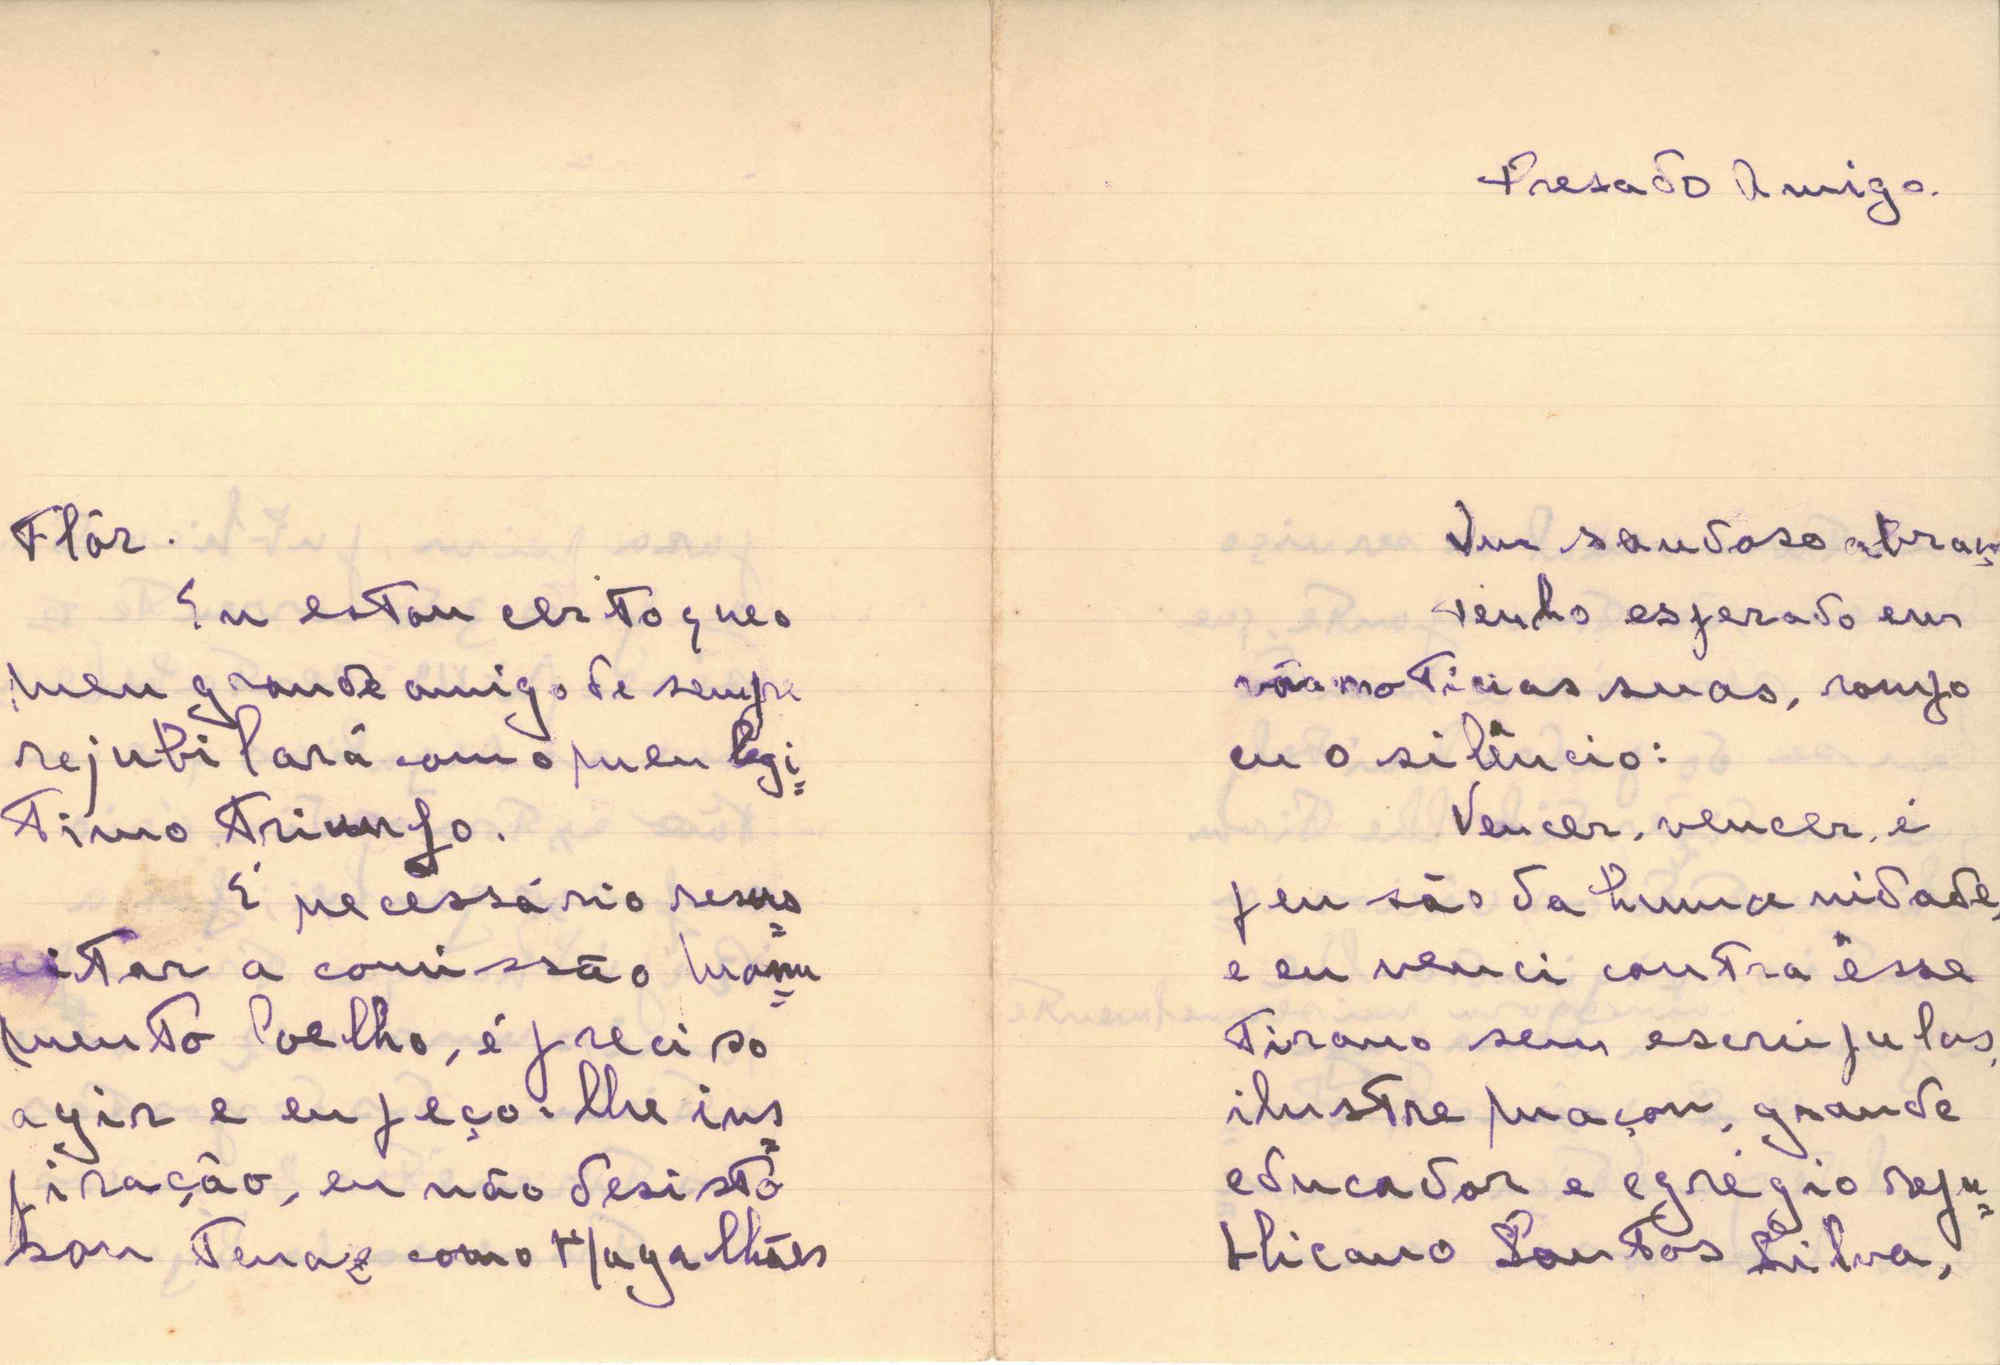 Presado Amigo.
Um saudoso abraç
Tenho esperado em
vão noticias suas, rompo
eu o silêncio:
Vencer, vencer, é
pensão da humanidade,
e eu venci contra êsse
tirano sem escrupulos,
ilustre maçon, grande
educador e egrégio repu=
blicano Santos Silva,
Flôr.
Eu estou certo que o
meu grande amigo de sempre
rejubilará com o meu legi=
timo triunfo.
É necessário ressus=
citar a comissão monu=
mento Coelho, é preciso
agir e eu peço-lhe ins=
piração, eu não desisto
sou tenaz como Magalhães